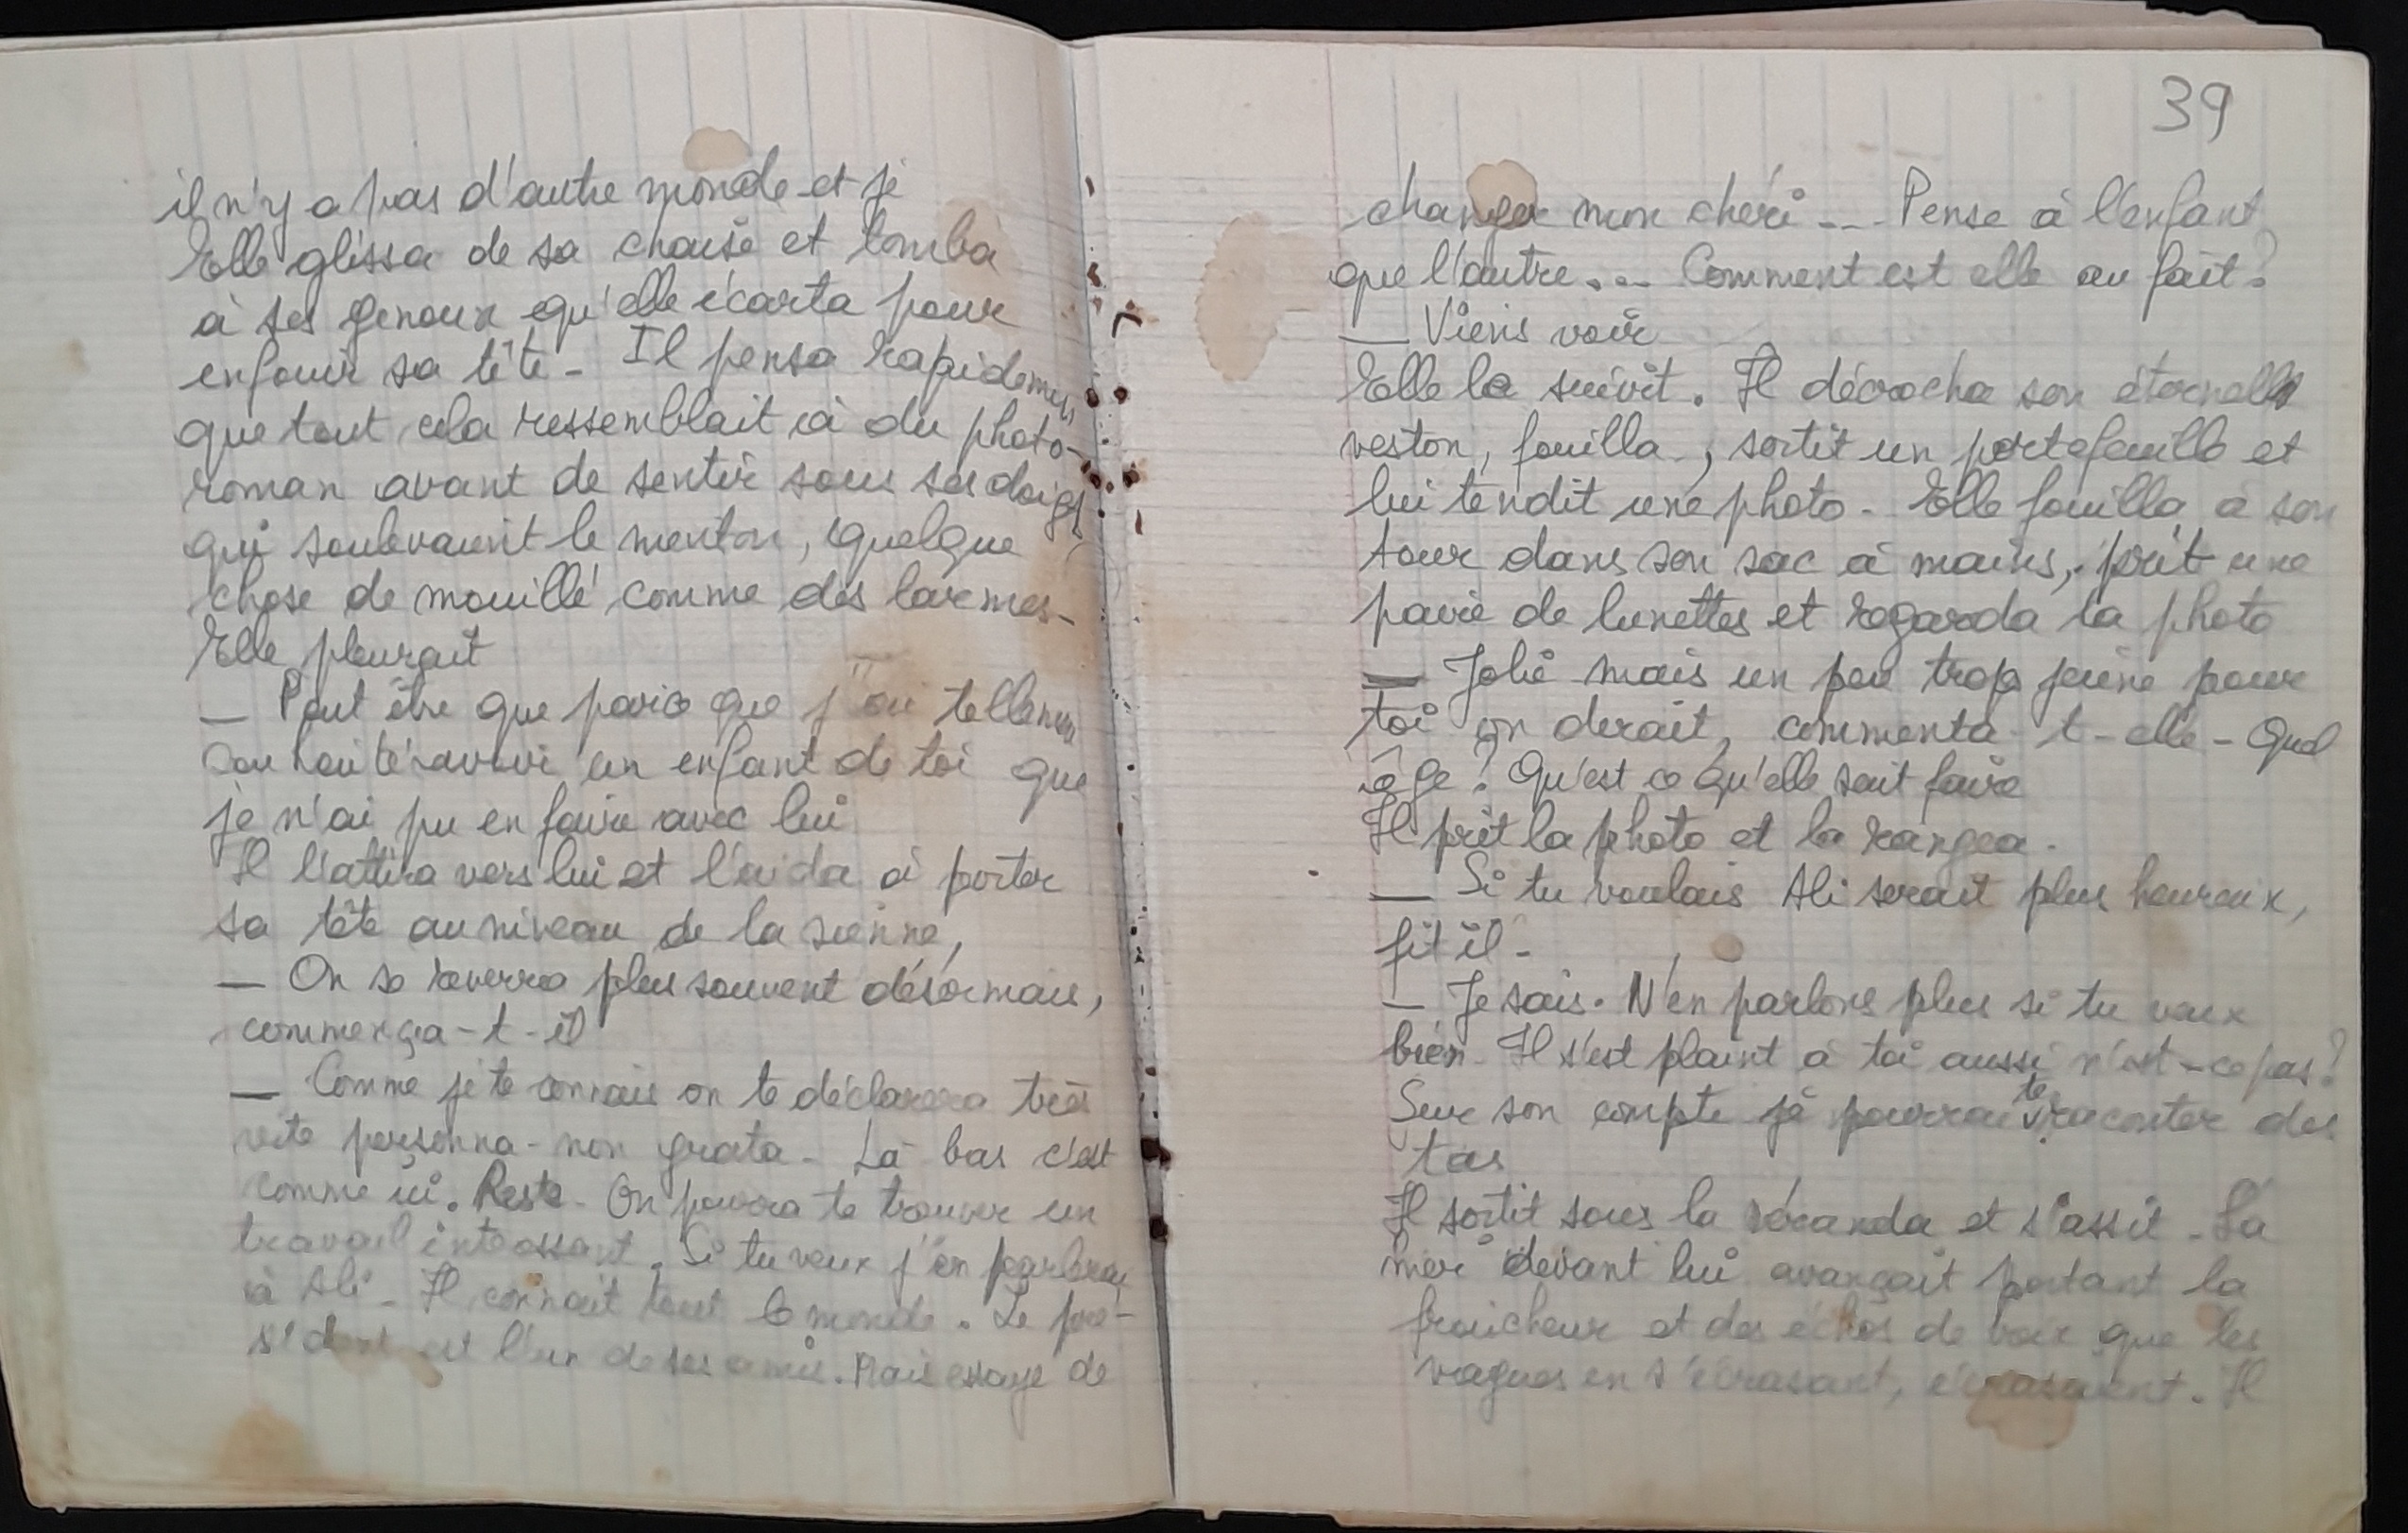 il n'y a pas d'autre monde et je
Elle glissa de sa chaise et tomba
à ses genoux qu'elle écarta pour
enfouir sa tête - Il pensa rapidement
que tout cela ressemblait à du photo-
roman avant de sentir sous ses doigts
qui soulevaient le menton, quelque
chose de mouillé comme des larmes -
Elle pleurait
— Peut être que parce que j'ai tellement
souhaité avoir un enfant de toi que
je n'ai pu en faire avec lui
Il l'attira vers lui et l'aida à porter
sa tête au niveau de la sienne,
— On se reverra plus souvent désormais,
commença-t-il
— Comme je te connais on te déclarera très
vite persona-non grata - Là bas c'est
comme ici. Reste - On pourra te trouver un
travail intéressant. Si tu veux j'en parlerai
à Ali - Il connait tout le monde. Le pré-
sident est l'un de ses amis. Mais essaye de
39
changer mon chéri --- Pense à l'enfant
que l'autre... Comment est elle au fait?
— Viens voir
Elle le suivit. Il décrocha son éternelle
veston, fouilla, sortit un portefeuille et
lui tendit une photo - Elle fouilla à son
tour dans son sac à mains, prit une
paire de lunettes et regarda la photo
— Jolie mais un peu trop jeune pour
toi on dirait, commenta-t-elle - Quel
âge? Qu'est ce qu'elle sait faire
Il prit la photo et la rangea.
— Si tu voulais Ali serait plus heureux,
fit il -
— Je sais. N'en parlons plus si tu veux
bien - Il s'est plaint à toi aussi n'est-ce pas?
Sur son compte je pourrai te raconter des
tas
Il sortit sous la véranda et s'assit - La
mer devant lui avançait portant la
fraicheur et des échos de voix que les
vagues en s'écrasant, écrasaient. Il